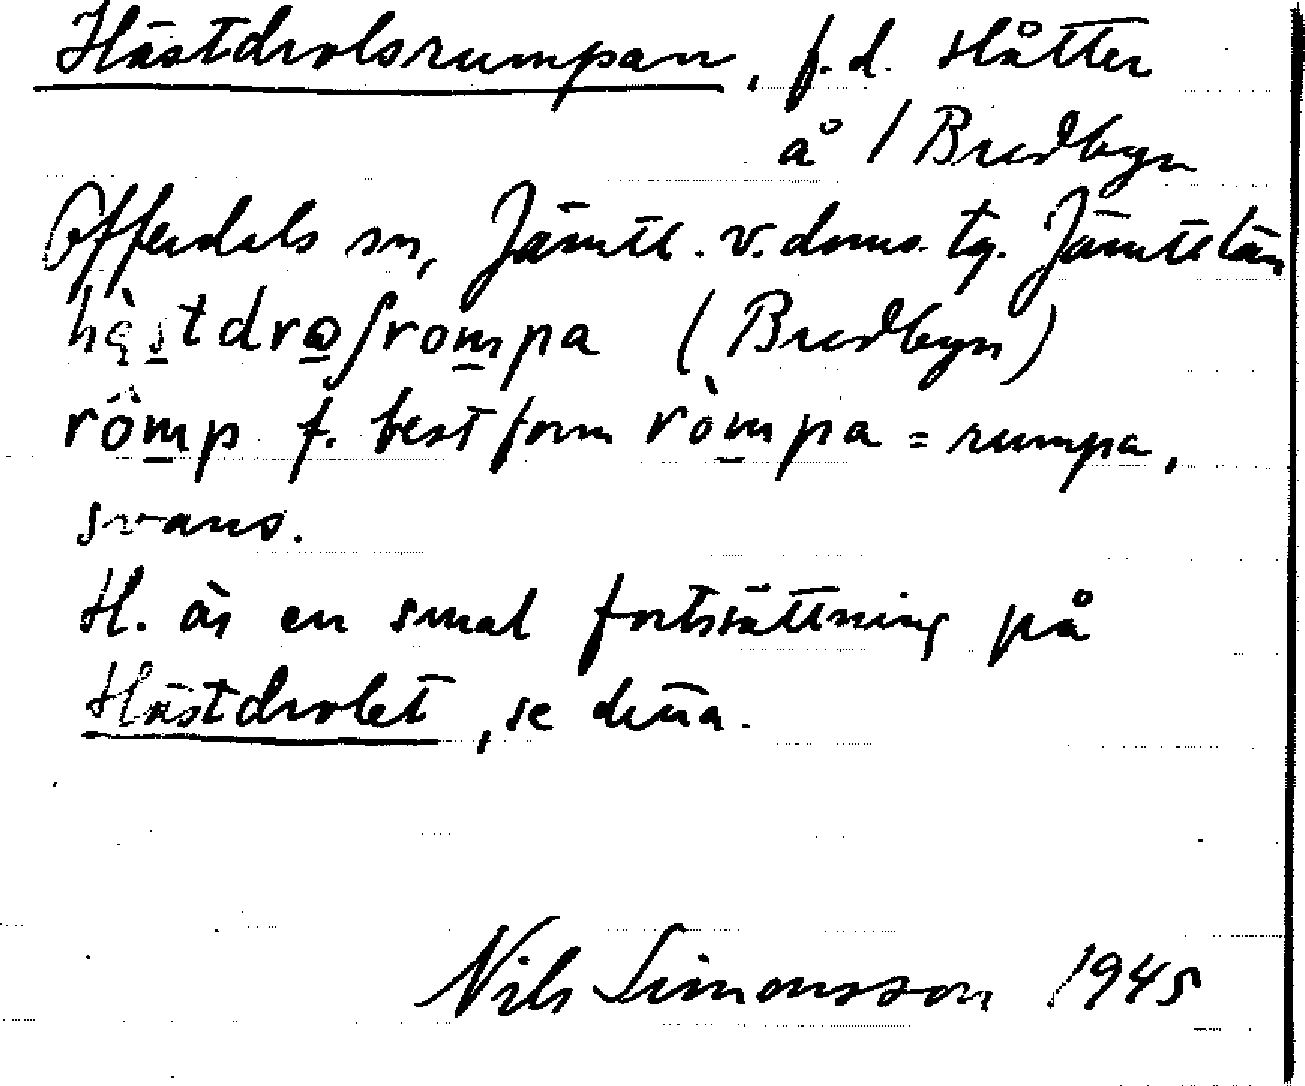 Hästdrolsrumpan, f.d. slåtter
å / Bredbyn
Offerdals sn, Jämtl. v. doms. tg. Jämtl län
hä̀stdroʃrompa (Bredbyn)
rômp f. best form ròmpa = rumpa,
svans.
H. är en smal fortsättning på
Hästdrolet, se detta.
Nils Simonsson 1945